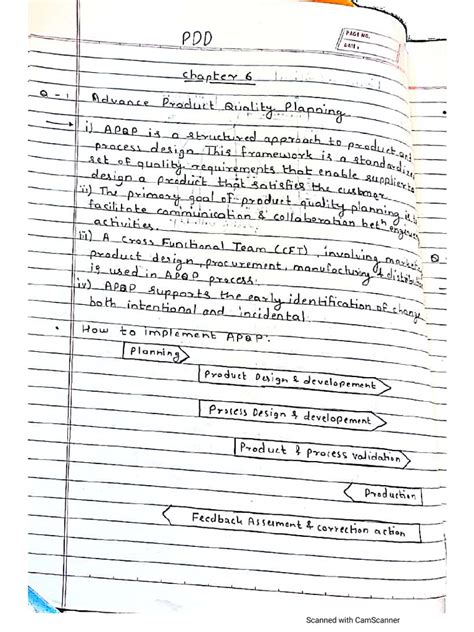 PDD
PAGE NO.
DATE:
Chapter 6
Q-1 Advance Product Quality Planning
→ i) APQP is a structured approach to product and
process design. This framework is a standardize
set of quality requirements that enable supplier to
design a product that satisfies the customer
ii) The primary goal of product quality planning is
facilitate communication & collaboration beth
activities.
iii) A cross Functional Team (CFT), involving
product design, procurement, manufacturing &
is used in APQP process.
iv) APQP supports the early identification of change
both intentional and incidental.
• How to implement APQP:
Planning
Product Design & developement
Process Design & developement
Product & process validation
Production
Feedback & correction action
Q
Scanned with CamScanner